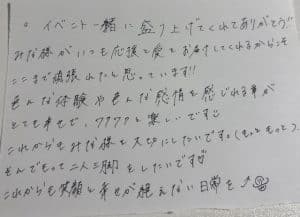 。イベント一緒に盛り上げてくれてありがとう!!
みな様がいつも応援と愛をお届してくれるからこそ
ここまで頑張れたと思っています!!
色んな体験や色んな感情を感じれる事が
とても幸せで、ワクワクと楽しいです
これからもみな様を大切にしたいです。(もっともっと)
そんでもって二人三脚をしたいです
これからも笑顔と幸せが絶えない日常を